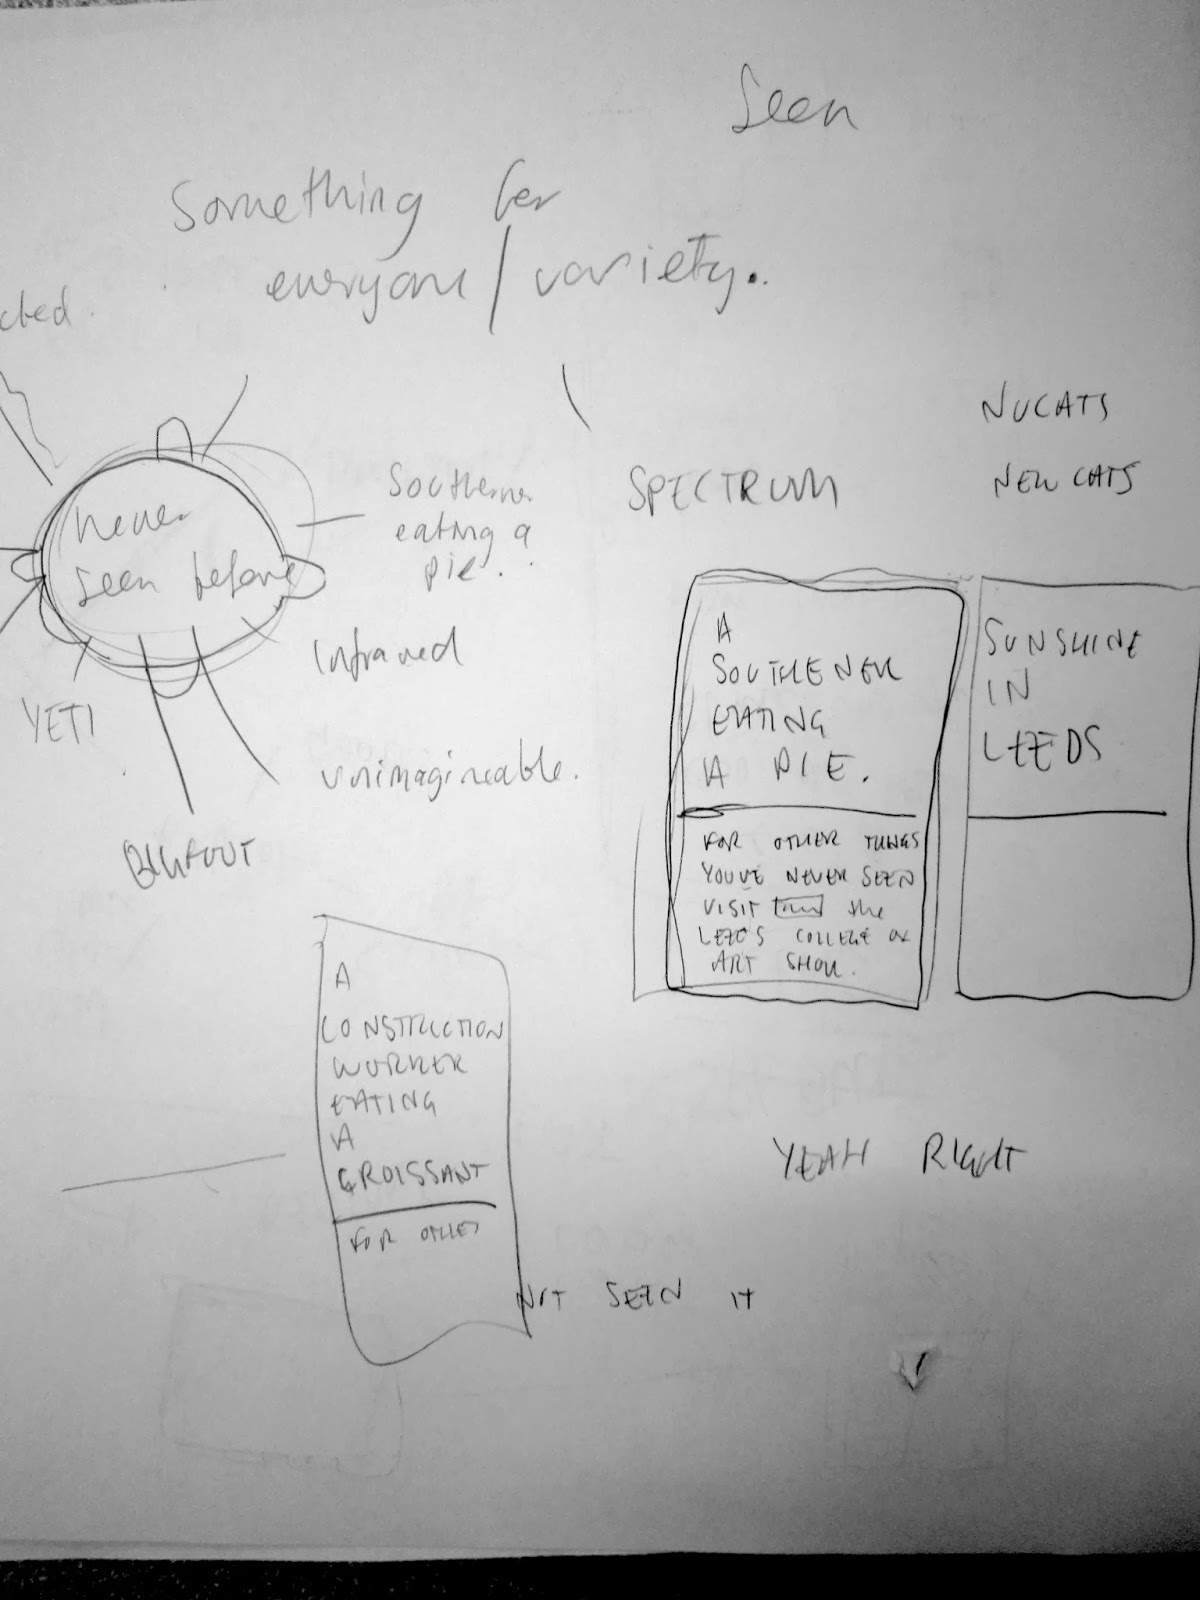 Seen
Something for
everyone / variety..
cted.
NUCATS
NEW CATS
SPECTRUM
never
seen before
Southerner
eating a
pie.
Infrared
YETI
unimagineable.
BIGFOOT
A
SOUTHENER
EATING
A PIE.
FOR OTHER THINGS
YOUVE NEVER SEEN
VISIT the
LEEDS COLLEGE OF
ART SHOW.
SUNSHINE
IN
LEEDS
A
CONSTRUCTION
WORKER
EATING
A
CROISSANT
FOR OTHER
YEAH RIGHT
NOT SEEN IT